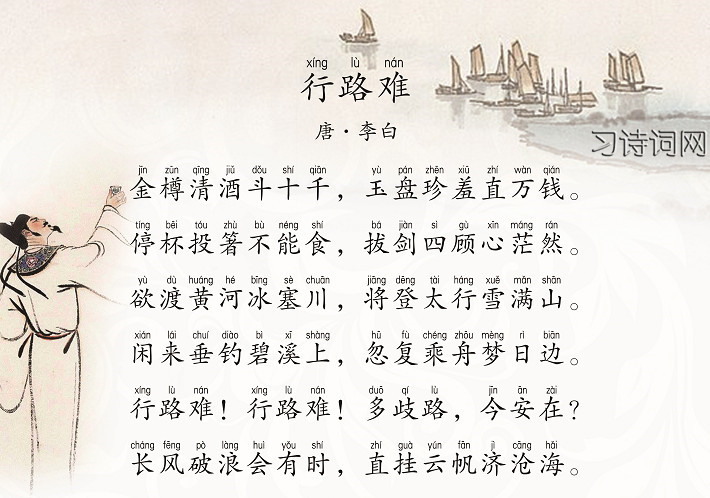 xíng lù nán
行路难
唐·李白
习诗词网
jīn zūn qīng jiǔ dǒu shí qiān yù pán zhēn xiū zhí wàn qián
金樽清酒斗十千，玉盘珍羞直万钱。
tíng bēi tóu zhù bù néng shí bá jiàn sì gù xīn máng rán
停杯投箸不能食，拔剑四顾心茫然。
yù dù huáng hé bīng sè chuān jiāng dēng tài háng xuě mǎn shān
欲渡黄河冰塞川，将登太行雪满山。
xián lái chuí diào bì xī shàng hū fù chéng zhōu mèng rì biān
闲来垂钓碧溪上，忽复乘舟梦日边。
xíng lù nán xíng lù nán duō qí lù jīn ān zài
行路难！行路难！多歧路，今安在？
cháng fēng pò làng huì yǒu shí zhí guà yún fān jì cāng hǎi
长风破浪会有时，直挂云帆济沧海。